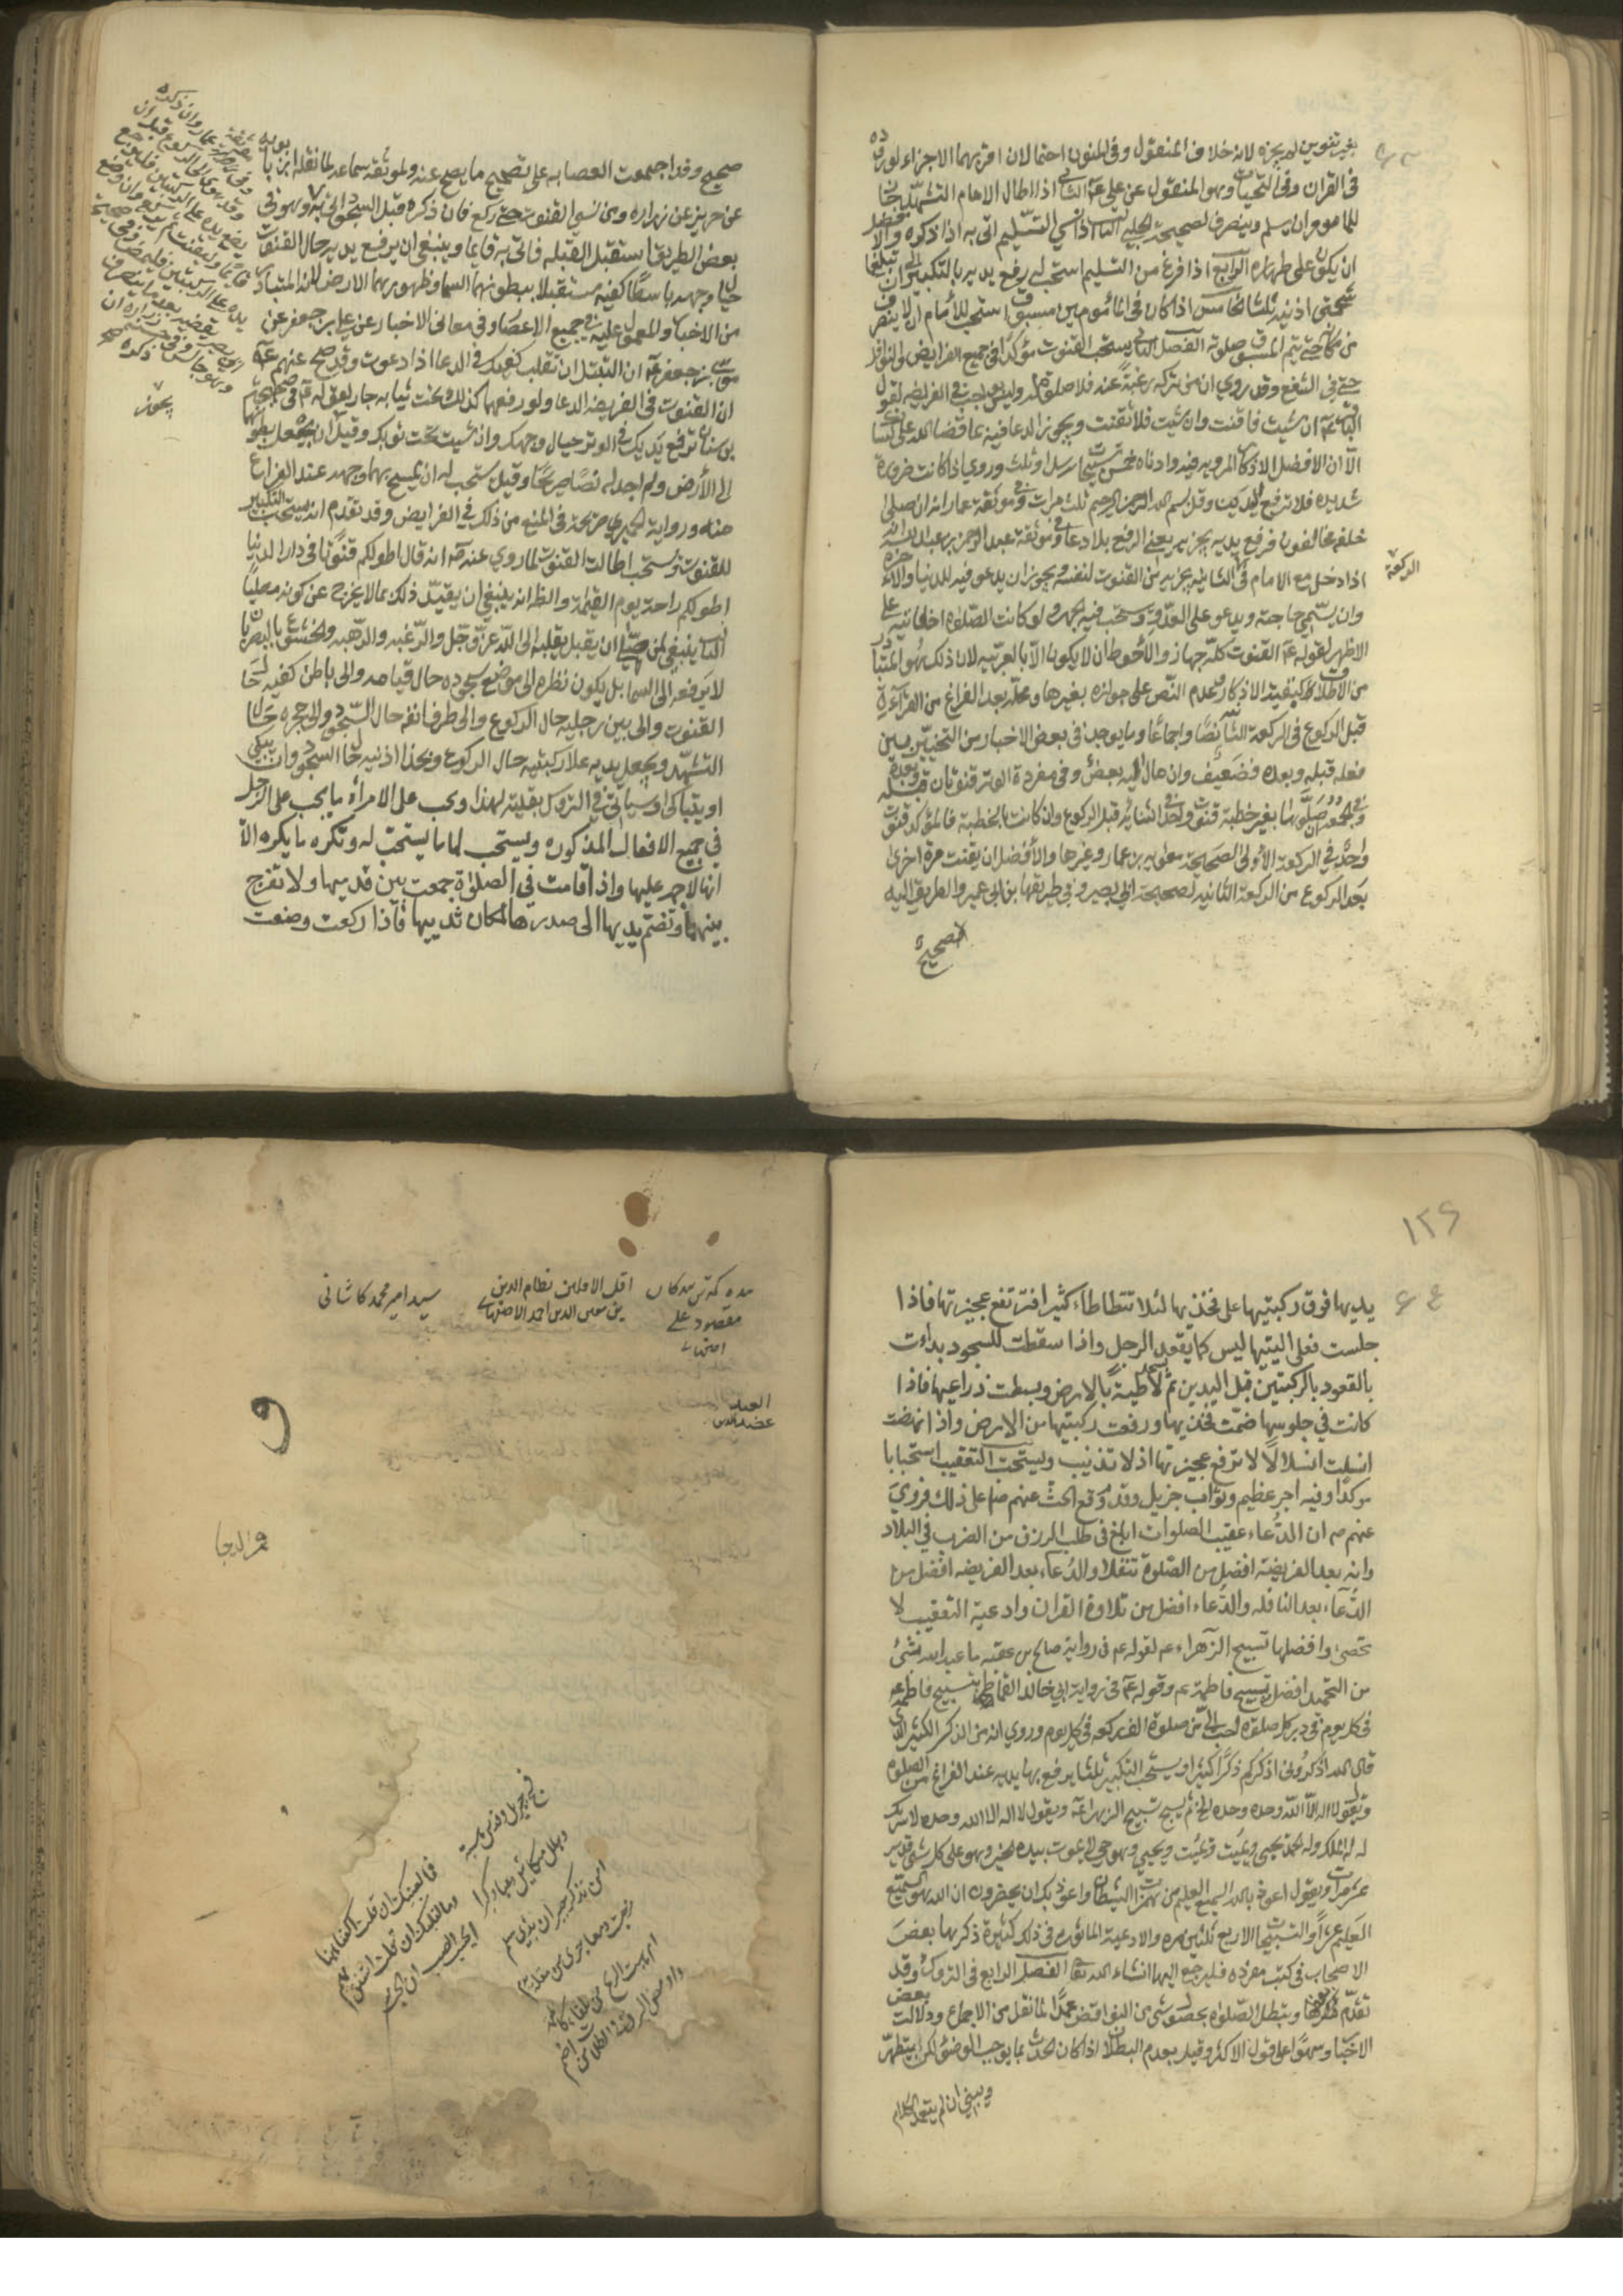 بغير تنوين لم يجزه لانه خلاف المنقول وفى المنون احتمالان اقربهما الاجزاء لوروده
فى القران وفى التحيات وهو المنقول عن على عم الثانى اذا اطال الامام التشهد جاز
للماموم ان يسلم وينصرف لصحيحة الحلبى الثالث اذا نسى التسليم اتى به اذا ذكره والا
ان يكون على طهاره الرابع اذا فرغ من التسليم استحب له رفع يديه بالتكبير الى ان تبلغا
شحمتى اذنيه ثلثا الخامس اذا كان فى المأمومين مسبوق استحب للأمام ان لا ينصرف
من مكانه حتى يتم المسبوق صلوته الفصل الثالث يستحب القنوت مؤكدا فى جميع الفرايض والنوافل
حتى فى الشفع وقد روي ان من تركه رغبة عنه فلا صلوة له وليس بواجب فى الفريضه لقول
الباقر عم ان شيت فاقنت وان شيت فلا تقنت ويجوز الدعا فيه بما قضا الله على لسانك
الا ان الافضل الاذكار المرويه فيه وادناه خمس تسبيحات او ثلث وروي اذا كانت ضرورة
شديده فلا ترفع اليدين وقل بسم الله الرحمن الرحيم ثلث مرات وفى موثقة عمار انه ان صلى
خلف مخالفون فرفع يديه يجزيه يعنى الرفع بلا دعا وفى موثقة عبد الرحمن بن عبد الله انه
اذا دخل مع الامام فى الثانيه يجزيه من القنوت لنفسه ويجوز ان يدعو فيه للدنيا والاخره
الركعة
وان يسمى حاجته ويدعو على العدو ويستحب فيه الجهر ولو كانت الصلواة اخفاتيه على
الاظهر لقوله عم القنوت كله جهار والأحوط ان لا يكون الا بالعربيه لان ذلك هو المتبادر
من اطلاق كيفية الاذكار وعدم النص على جوازه بغيرها ومحله بعد الفراغ من القرآءة
قبل الركوع فى الركعة الثانيه نصا واجماعا وما يوجد فى بعض الاخبار من التخيير بين
فعله قبله وبعده فضعيف وان مال اليه بعض وفى مفردة الوتر قنوتان قبله وبعده
وفى الجمعه ان صلوها بغير خطبة قنوت واحد فى الثانيه قبل الركوع وان كانت بالخطبة فالمؤكد قنوت
واحد فى الركعة الأولى لصحيحة معويه بن عمار وغيرها والأفضل ان يقنت مرة اخرى
بعد الركوع من الركعة الثانيه لصحيحة ابى بصير وفى طريقها ابن ابى عمير والطريق اليه
صحيح
صحيح وقد اجمعت العصابه على تصحيح ما يصح عنه ولموثقة سماعه لما نقله ابن بابويه
عن حريز عن زراره ومن نسي القنوت حتى ركع فان ذكره قبل السجود اتى به وهو فى
بعض الطريق استقبل القبله فاتى به قايما وينبغى ان يرفع يديه حال القنوت
حيال وجهه باسطا كفيه مستقبلا ببطونهما السما وظهورهما الارض لانه المتبادر
من الاخبار والمعمول عليه فى جميع الاعصار وفى معانى الاخبار عن على بن جعفر عن
موسى بن جعفر عم ان التبتل ان تقلب كفيك فى الدعا اذا دعوت وقد صح عنهم عم
ان القنوت فى الفريضه الدعا ولو رفعهما كذلك تحت ثيابه جاز لقوله عم فى صحيحة
بن سنان ترفع يديك فى الوتر حيال وجهك وان شيت تحت ثوبك وقيل ان يجعل بطونهما
الى الأرض ولم اجد له نصا صريحا وقيل يستحب له ان يمسح بهما وجهه عند الفراغ
منه ورواية الحميري صريحة فى المنع من ذلك فى الفرايض وقد تقدم انه يستحب التكبير
للقنوت ويستحب اطالت القنوت لما روي عنه ص انه قال اطولكم قنوتا فى دار الدنيا
اطولكم راحة يوم القيمة والظ انه ينبغى ان يقيد ذلك بما لا يخرج عن كونه مصليا
الثالث ينبغى لمن يصلى ان يقبل بقلبه الى الله عز وجل والرغبه والرهبه ويخشع بالبصر بان
لا يرفعه الى السما بل يكون نظره الى موضع سجوده حال قيامه والى باطن كفيه حال
القنوت والى بين رجليه حال الركوع والى طرف انفه حال السجود والى حجره حال
التشهد ويجعل يديه على ركبتيه حال الركوع وبحذا اذنيه حال السجود وان يبكى
او يتباكى وسياتى فى التروك بقليته لهذا ويجب على الامرأه ما يجب على الرجل
في جميع الافعال المذكوره ويستحب لها ما يستحب له وتكره ما يكره الا
انها لا جهر عليها واذا قامت في الصلوة جمعت بين قدميها ولا تفرج
بينهما وتضم يديها الى صدرها لمكان ثدييها فاذا ركعت وضعت
١٢٦
يديها فوق ركبتيها على فخذيها لئلا تتطاطا كثيرا فترتفع عجيزتها فاذا
جلست فعلى اليتيها ليس كما يقعد الرجل واذا سقطت للسجود بداءت
بالقعود بالركبتين قبل اليدين ثم تسجد لاطية بالارض وبسطت ذراعيها فاذا
كانت في جلوسها ضمت فخذيها ورفعت ركبتيها من الارض واذا نهضت
انسلت انسلالا لا ترفع عجيزتها اذ لا تذنيب ويستحب التعقيب استحبابا
موكدا وفيه اجر عظيم وثواب جزيل وقد وقع الحث عنهم ص على ذلك فروي
عنهم ص ان الدعاء عقيب الصلوات ابلغ فى طلب الرزق من الضرب في البلاد
وانه بعد الفريضة افضل من الصلوة تنفلا والدعاء بعد الفريضه افضل من
الدعآء بعد النافله والدعاء افضل من تلاوة القران وادعية التعقيب لا
تحصى وافضلها تسبيح الزهراء عم لقوله عم فى رواية صالح بن عقبه ما عبد الله بشئ
من التحميد افضل من تسبيح فاطمة عم وقوله عم فى رواية ابي خالد القماط تسبيح فاطمه
فى كل يوم فى دبر كل صلوة احب الى من صلوة الف ركعه فى كل يوم وروي انه من الذكر الكثير الذى
قال الله اذكروني اذكركم ذكرا كثيرا ويستحب التكبير ثلثا يرفع بها يديه عند الفراغ من الصلوة
ويقول لا اله الا الله وحده وحده الخ ثم يسبح تسبيح الزهرا عم ويقول لا اله الا الله وحده لا شريك
له له الملك وله الحمد يحيى ويميت ويميت ويحيي وهو حي لا يموت بيده الخير وهو على كل شئ قدير
عشر مرات ويقول اعوذ بالله السميع العليم من همزات الشيطان واعوذ بك ان يحضرون ان الله هو السميع
العليم عشرا والتسبيحات الاربع ثلثين مره والادعية الماثوره فى ذلك كثيرة ذكرها بعض
الاصحاب فى كتب مفرده فليرجع اليها انشاء الله تعالى الفصل الرابع فى التروك وقد
تقدم بعضها ويبطل الصلواة بحصول شئ من النواقض عمدا لما نقل من الاجماع ودلالت بعض
الاخبار وسهوا على قول الاكثر وقيل بعدم البطلان اذا كان الحدث مما يوجب الوضوء لكن يتطهر
ويبنى ان لم يتعمد الكلام
مقصود على
اقل الاقلين نظام الدين
بن معين الدين احمد الاصفهانى
سيد امير محمد كاشانى
العبد
عضد الدين
امن تذكر جيران بذى سلم
مزجت دمعا جرى من مقلة بدم
ام هبت الريح من تلقاء كاظمة
واومض البرق فى الظلماء من اضم
فما لعينيك ان قلت اكففا همتا
وما لقلبك ان قلت استفق يهم
ايحسب الصب ان الحب